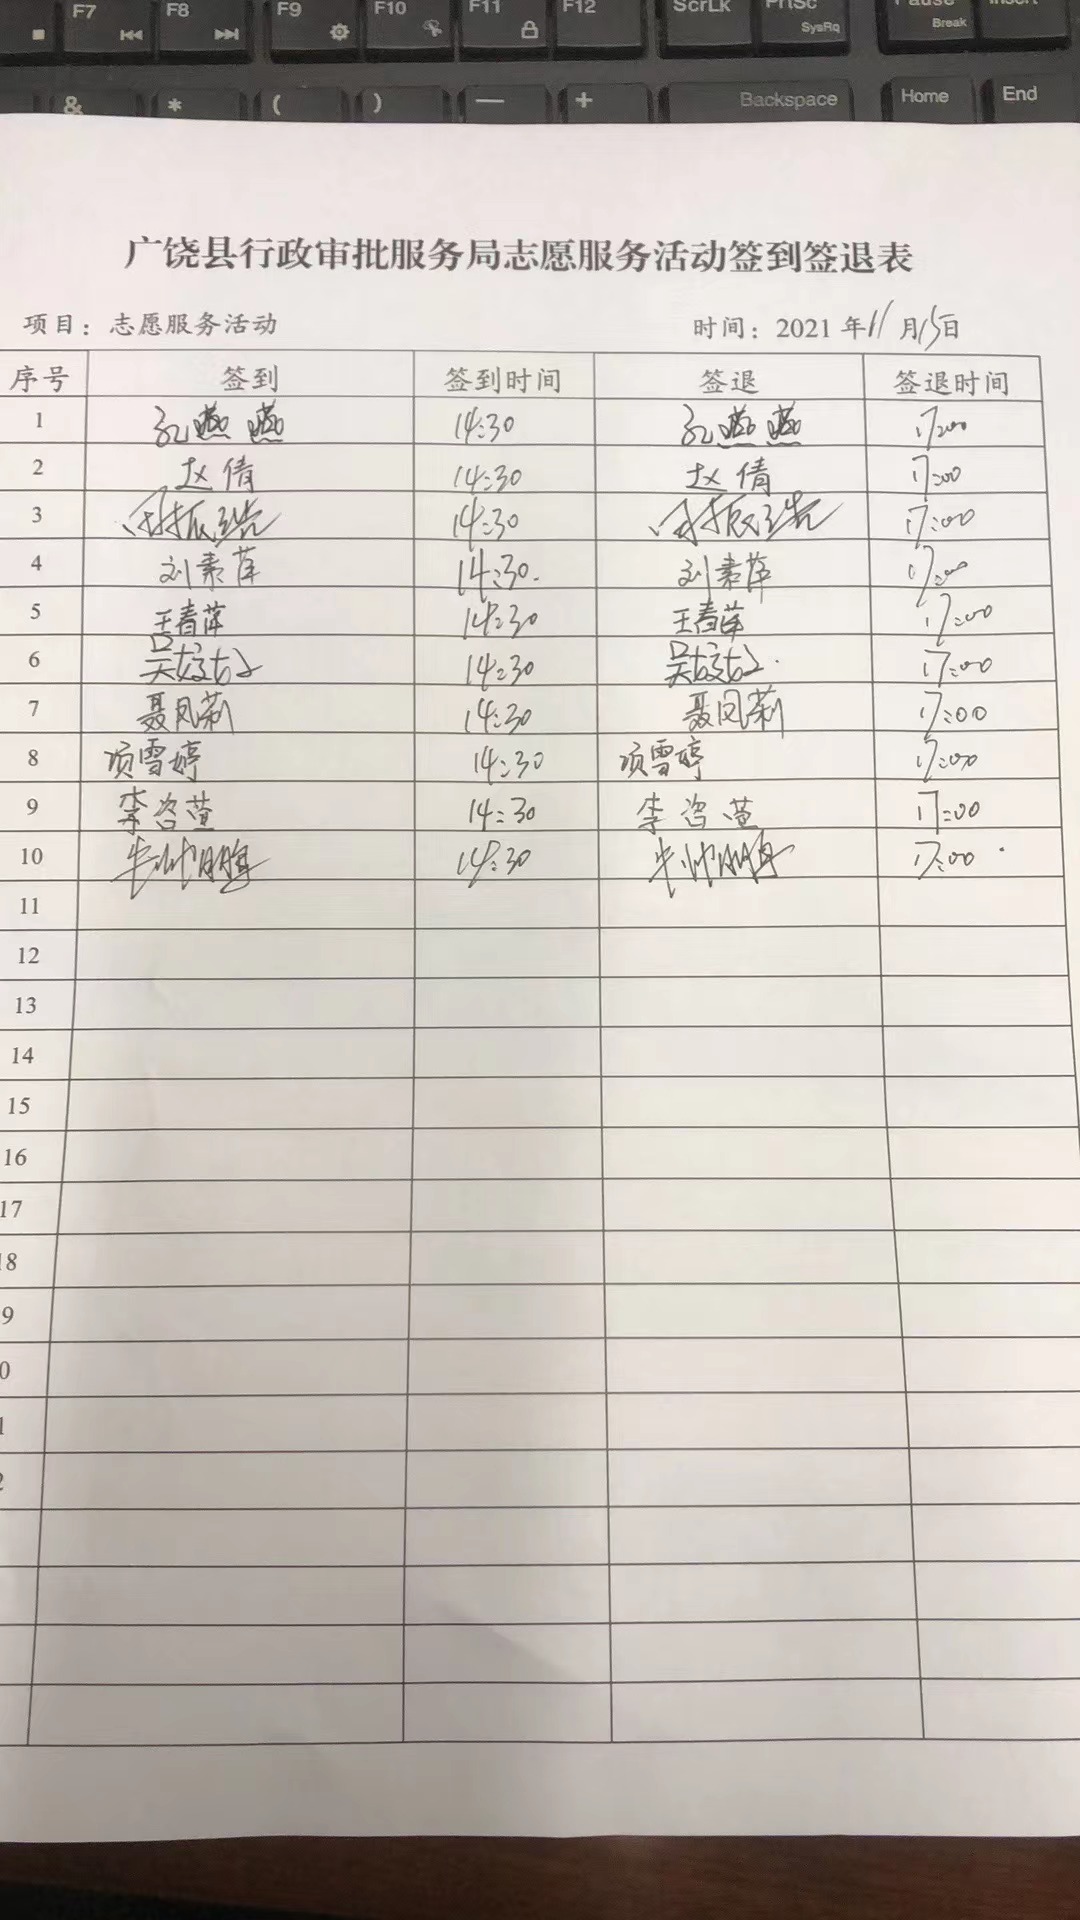 F7 F8 F9 F10 F11 F12 ScrLk PrtSc SysRq Pause Break Insert
& * ( ) — + Backspace Home End
广饶县行政审批服务局志愿服务活动签到签退表
项目：志愿服务活动 时间：2021年11月15日
序号 签到 签到时间 签退 签退时间
1 孔燕燕 14:30 孔燕燕 17:00
2 赵倩 14:30 赵倩 17:00
3 14:30 17:00
4 刘素萍 14:30. 刘素萍 17:00
5 王春萍 14:30 王春萍 17:00
6 吴姣姣 14:30 吴姣姣 17:00
7 聂凤莉 14:30 聂凤莉 17:00
8 项雪婷 14:30 项雪婷 17:00
9 李咨萱 14:30 李咨萱 17:00
10 14:30 17:00
11
12
13
14
15
16
17
18
9
0
1
2